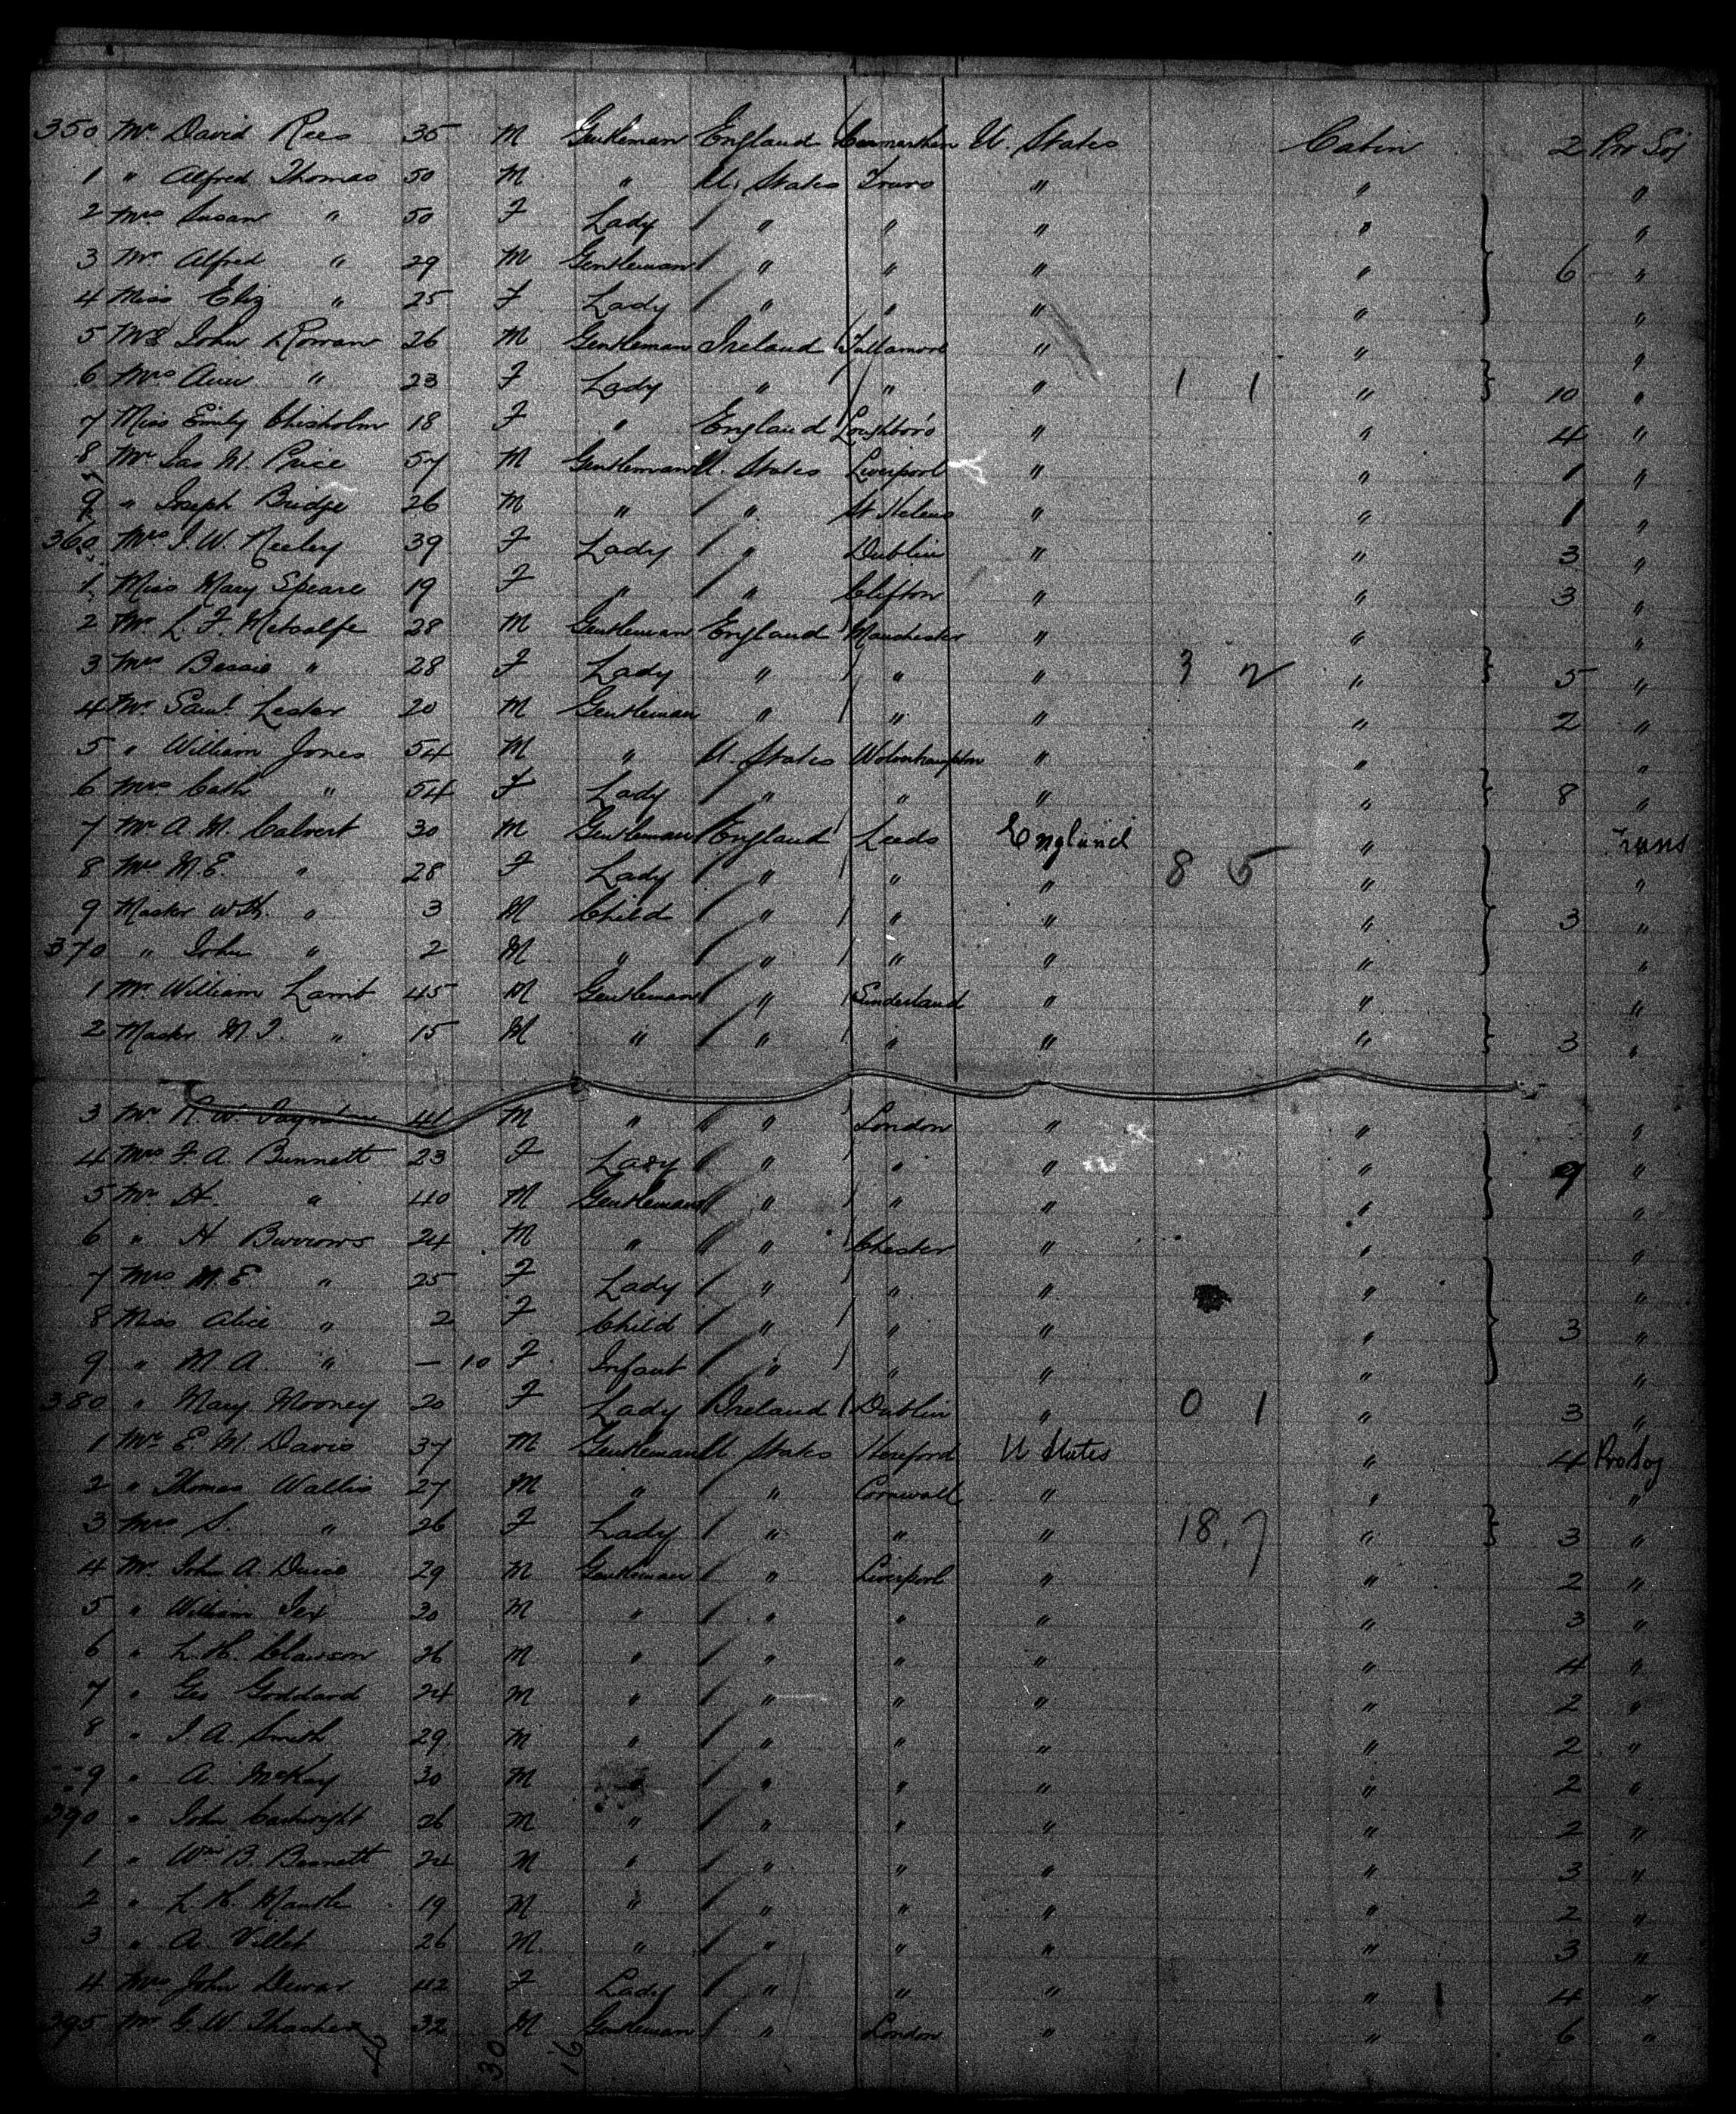 350 Mr David Rees 35 M Gentleman England Carmarthen U. States Cabin 2 Pro Soj
1 " Alfred Thomas 50 M " U. States Truro " " "
2 Mrs Susan " 50 F Lady " " " " "
3 Mr Alfred " 29 M Gentleman " " " " 6 "
4 Miss Eliz " 25 F Lady " " " " "
5 John Rowan 26 M Gentleman Ireland Tullamore " " "
6 Mrs Ann " 23 F Lady " " " 1 1 " 10 "
7 Miss Emily Chisholm 18 F " England Loughboro " " 4 "
8 Mr Jas M. Price 57 M Gentleman U. States Liverpool " " 1 "
9 " Joseph Bridge 26 M " " St Helens " " 1 "
360 Mrs J. W. Neeley 39 F Lady " Dublin " " 3 "
1 Miss Mary Speare 19 F " " Clifton " " 3 "
2 Mr L. F. Metcalfe 28 M Gentleman England Manchester " " "
3 Mrs Bessie " 28 F Lady " " " 3 2 " 5 "
4 Mr Saml. Lester 20 M Gentleman " " " " 2 "
5 " William Jones 54 M " U. States Wolverhampton " " "
6 Mrs Cath " 54 F Lady " " " " 8 "
7 Mr A. M. Calvert 30 M Gentleman England Leeds England " Trans
8 Mrs M. E. " 28 F Lady " " " 8 5 " "
9 Master W. H. " 3 M Child " " " " 3 "
370 " John " 2 M " " " " " "
1 Mr William Lamb 45 M Gentleman " Sunderland " " "
2 Master M. J. " 15 M " " " " " 3 "
3 Mr R. W. 44 M " " London " " "
4 Mrs F. A. Bunnett 23 F Lady " " " " 9 "
5 Mr H. " 40 M Gentleman " " " " "
6 " H Burrows 24 M " " Chester " " "
7 Mrs M. E " 25 F Lady " " " " "
8 Miss Alice " 2 F Child " " " " 3 "
9 " M. A. " — 10 F Infant " " " " "
380 " Mary Mooney 20 F Lady Ireland Dublin " 0 1 " 3 "
1 Mr E. M. Davis 37 M Gentleman U States Hereford U States " 4 Pro Soj
2 " Thomas Wallis 27 M " " Cornwall " " "
3 Mrs S. " 26 F Lady " " " 18 7 " 3 "
4 Mr John A. 29 M Gentleman " Liverpool " " 2 "
5 " William 30 M " " " " " 3 "
6 " L. H. Clawson 26 M " " " " " 4 "
7 " Geo Goddard 24 M " " " " " 2 "
8 " J. A. Smith 29 M " " " " " 2 "
9 " A. McKay 30 M " " " " " 2 "
390 " John Cartwright 26 M " " " " " 2 "
1 " Wm B. Bennett 24 M " " " " " 3 "
2 " L. H. Mantle 19 M " " " " " 2 "
3 " A. Villet 26 M " " " " " 3 "
4 Mrs John Dewar 42 F Lady " " " " 4 "
395 Mr G. W. Thacher 32 M Gentleman " London " " 6 "
46 30 16